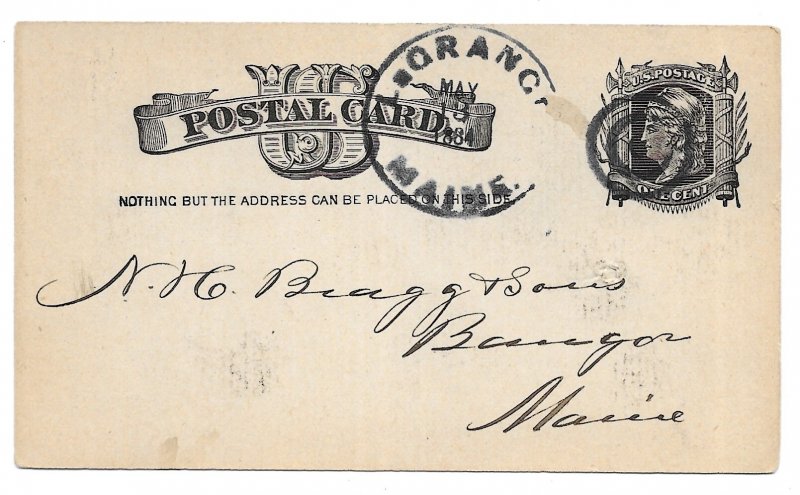 US
POSTAL CARD
ORANG
MAY
1884
MAINE.
U.S. POSTAGE
ONE CENT
NOTHING BUT THE ADDRESS CAN BE PLACED ON THIS SIDE.
N. H. Bragg & Sons
Bangor
Maine